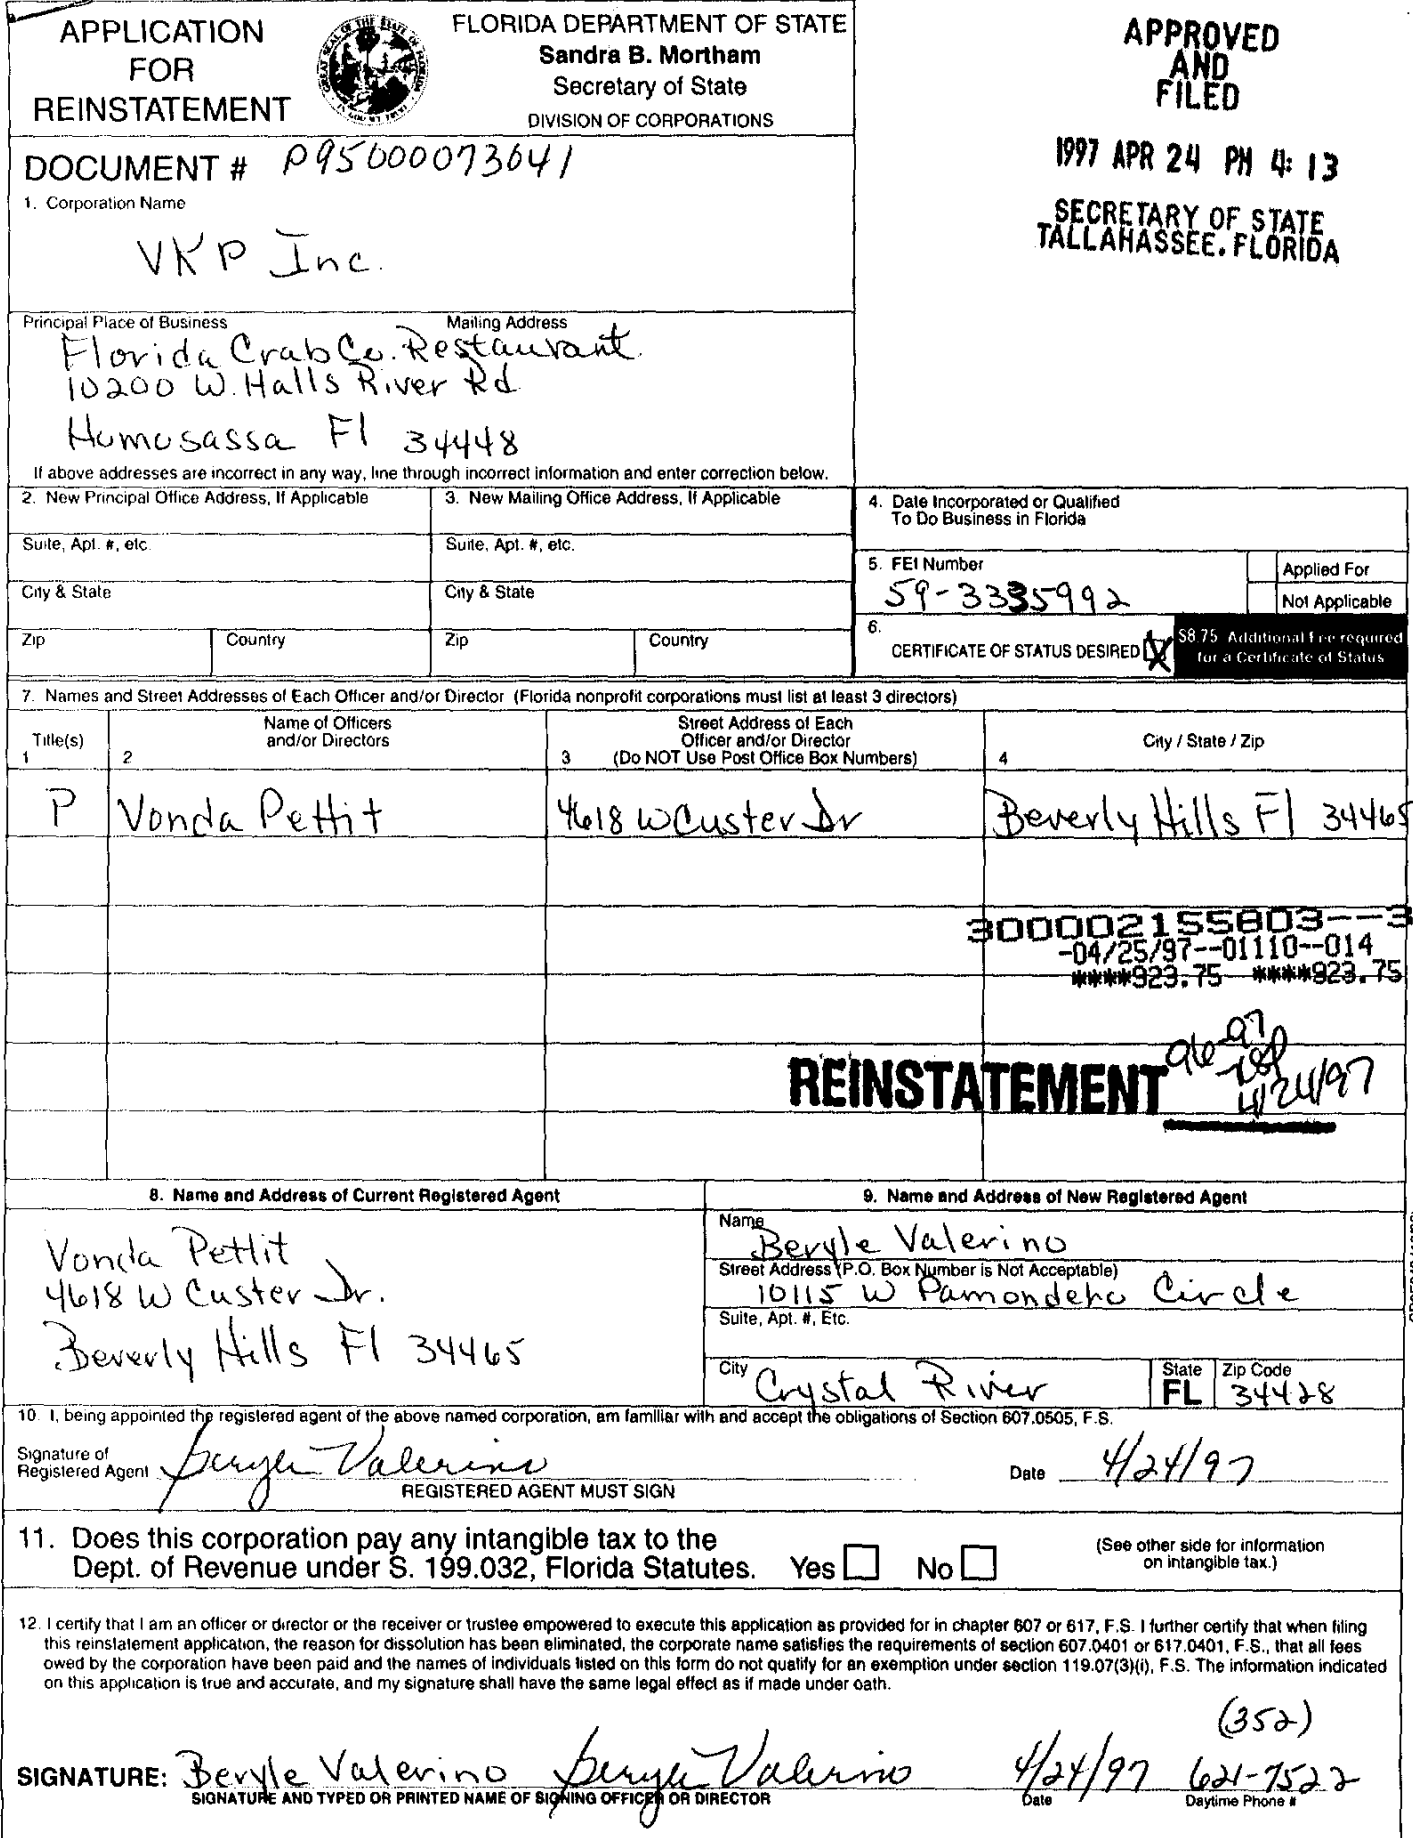 APPLICATION
FOR
REINSTATEMENT
FLORIDA DEPARTMENT OF STATE
Sandra B. Mortham
Secretary of State
DIVISION OF CORPORATIONS
APPROVED
AND
FILED
1997 APR 24 PM 4: 13
SECRETARY OF STATE
TALLAHASSEE. FLORIDA
DOCUMENT # P95000073641
1. Corporation Name
VKP Inc.
Principal Place of Business Mailing Address
Florida Crab Co. Restaurant
10200 W. Halls River Rd
Homosassa Fl 34448
If above addresses are incorrect in any way, line through incorrect information and enter correction below.
2. New Principal Office Address, If Applicable
3. New Mailing Office Address, If Applicable
4. Date Incorporated or Qualified
To Do Business in Florida
Suite, Apt. #, etc.
Suite, Apt. #, etc.
5. FEI Number
59-3335992
Applied For
Not Applicable
City & State
City & State
Zip Country
Zip Country
6.
CERTIFICATE OF STATUS DESIRED X
$8.75 Additional Fee required
for a Certificate of Status
7. Names and Street Addresses of Each Officer and/or Director (Florida nonprofit corporations must list at least 3 directors)
Title(s)
1
Name of Officers
and/or Directors
2
Street Address of Each
Officer and/or Director
3 (Do NOT Use Post Office Box Numbers)
City / State / Zip
4
P Vonda Pettit 4618 W Custer Dr Beverly Hills Fl 34465
3000002155803--3
-04/25/97--01110--014
****923.75 ****923.75
REINSTATEMENT 96-97
4/24/97
8. Name and Address of Current Registered Agent
Vonda Pettit
4618 W Custer Dr.
Beverly Hills Fl 34465
9. Name and Address of New Registered Agent
Name
Beryle Valerino
Street Address (P.O. Box Number is Not Acceptable)
10115 W Pamondeho Circle
Suite, Apt. #, Etc.
City Crystal River State FL Zip Code 34428
10. I, being appointed the registered agent of the above named corporation, am familiar with and accept the obligations of Section 607.0505, F.S.
Signature of
Registered Agent Beryle Valerino Date 4/24/97
REGISTERED AGENT MUST SIGN
11. Does this corporation pay any intangible tax to the
Dept. of Revenue under S. 199.032, Florida Statutes. Yes No
(See other side for information
on intangible tax.)
12. I certify that I am an officer or director or the receiver or trustee empowered to execute this application as provided for in chapter 607 or 617, F.S. I further certify that when filing
this reinstatement application, the reason for dissolution has been eliminated, the corporate name satisfies the requirements of section 607.0401 or 617.0401, F.S., that all fees
owed by the corporation have been paid and the names of individuals listed on this form do not qualify for an exemption under section 119.07(3)(i), F.S. The information indicated
on this application is true and accurate, and my signature shall have the same legal effect as if made under oath.
(352)
SIGNATURE: Beryle Valerino Beryle Valerino 4/24/97 621-7522
SIGNATURE AND TYPED OR PRINTED NAME OF SIGNING OFFICER OR DIRECTOR Date Daytime Phone #